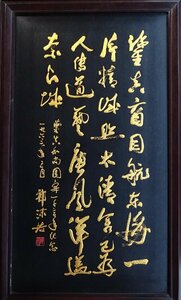 鉴真盲目航东海一
片精诚照太清舍己为
人传道艺唐风洋溢
奈良城
一九六三年
郭沫若